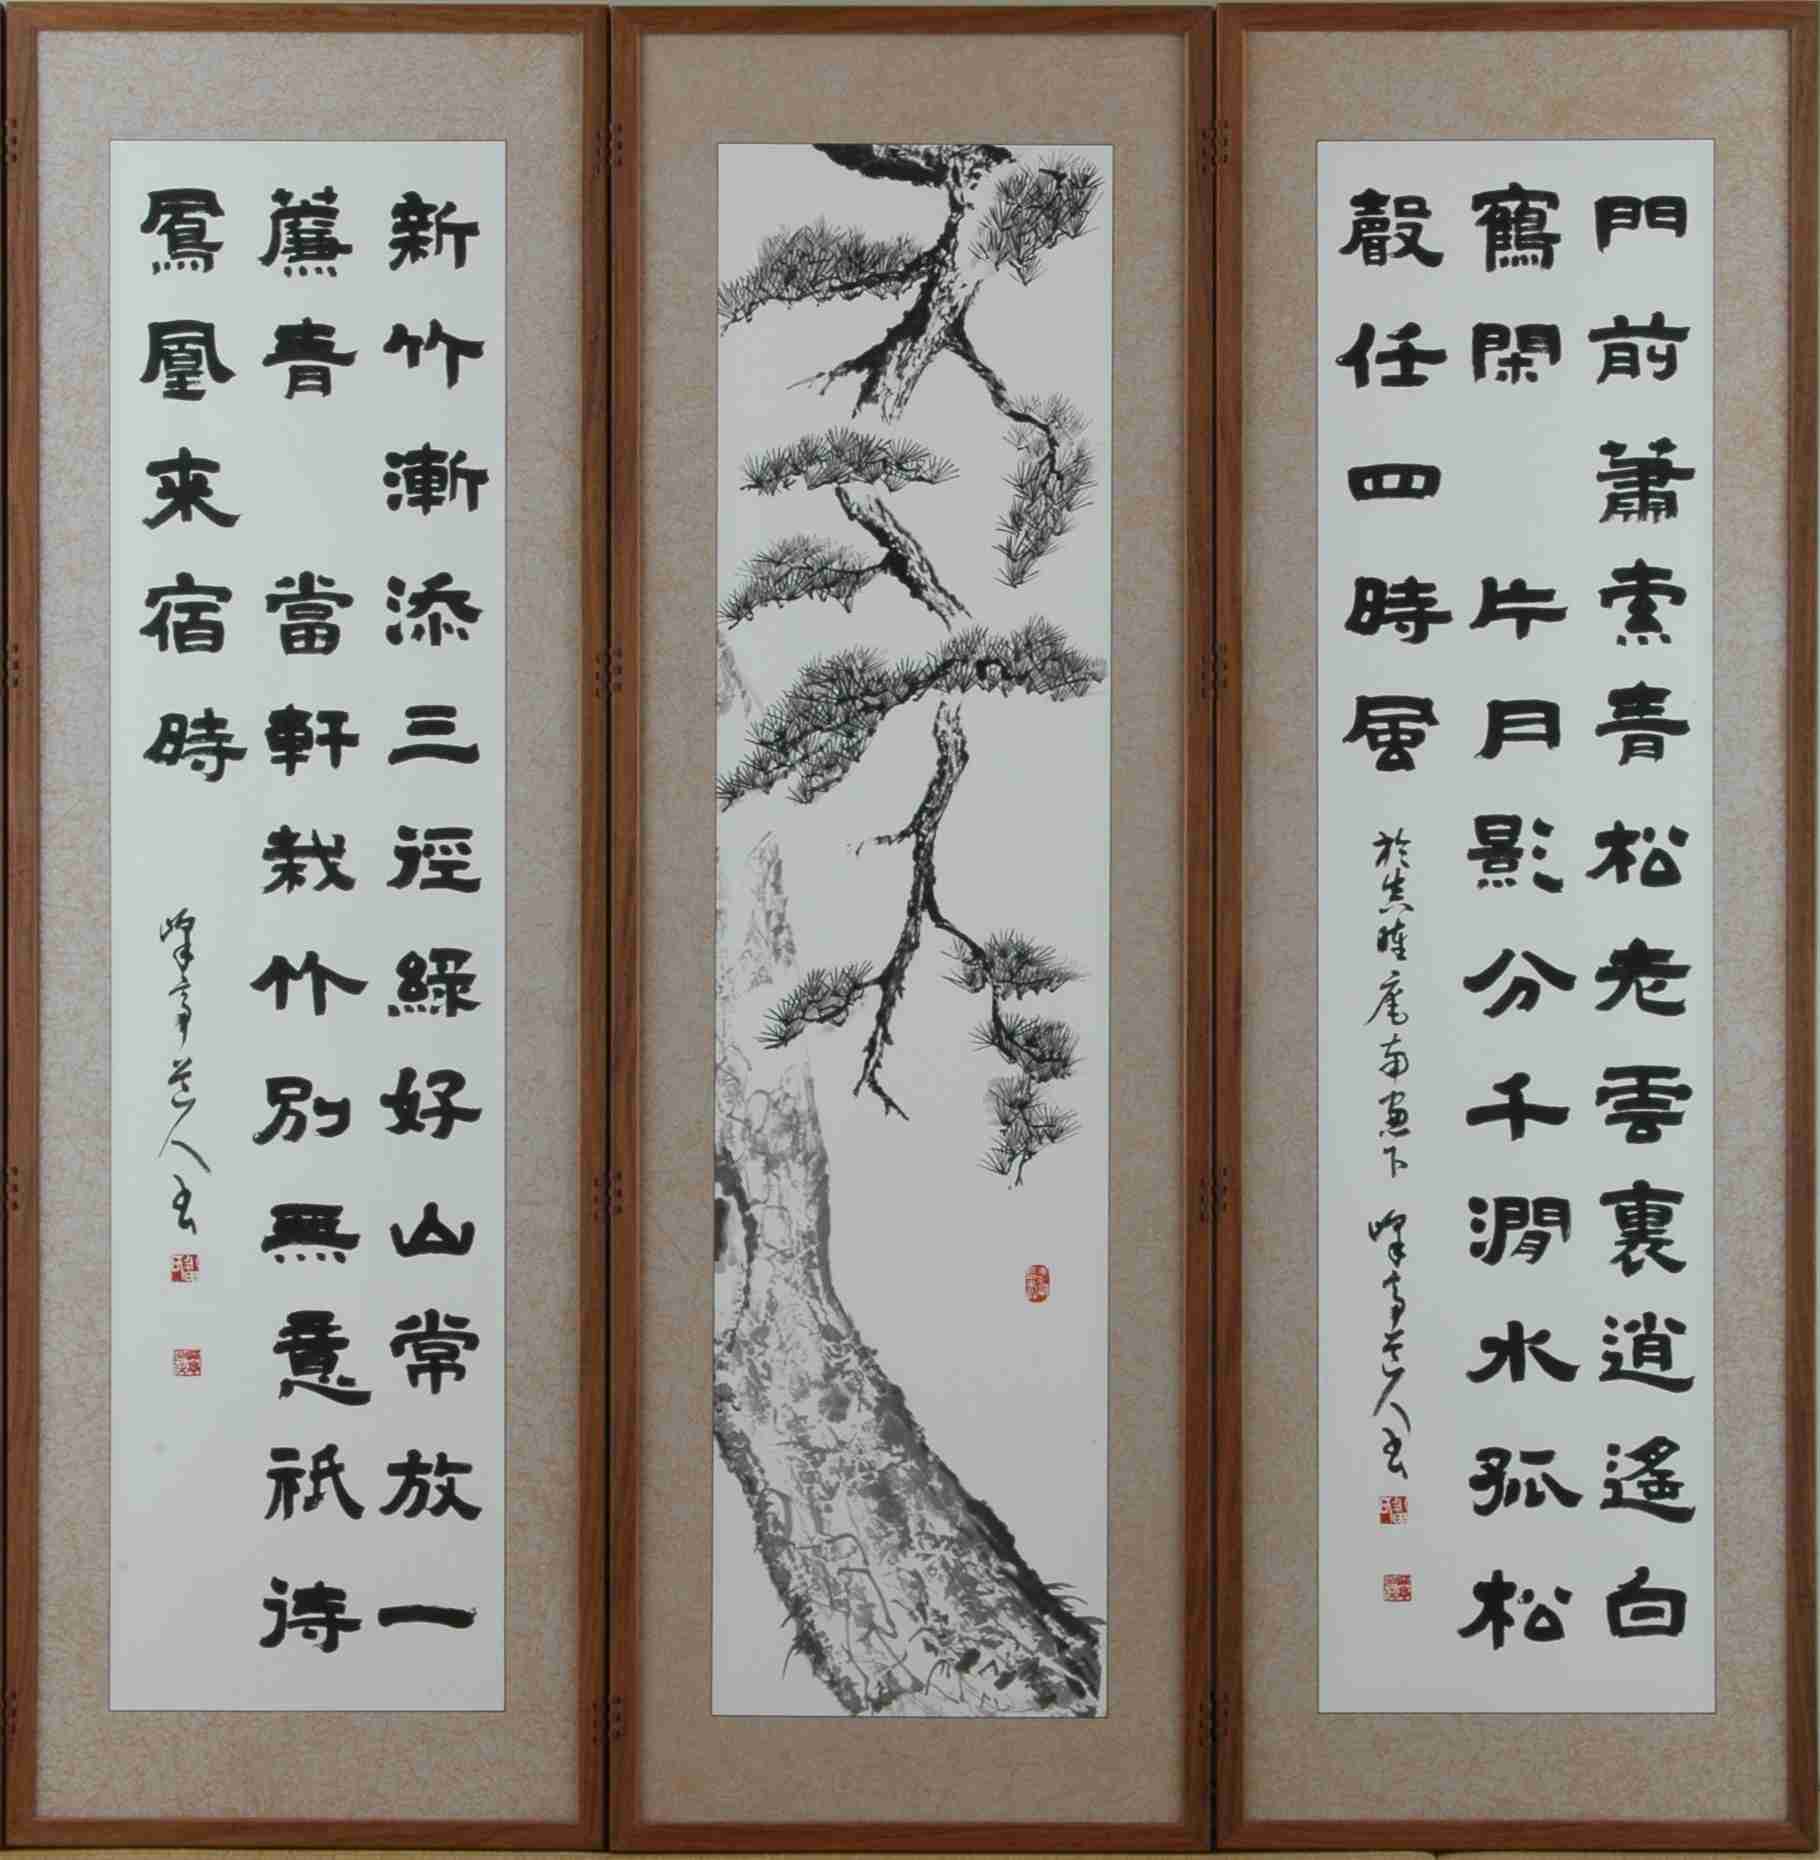 門前蕭索青松老雲裏逍遙白
鶴閑 片月影分千澗水孤松
聲任四時風 於 庵南窓下 峰亭道人書
新竹漸添三徑綠好山常放一
簾青 當軒栽竹別無意祇待
鳳凰来宿時 峰亭道人書